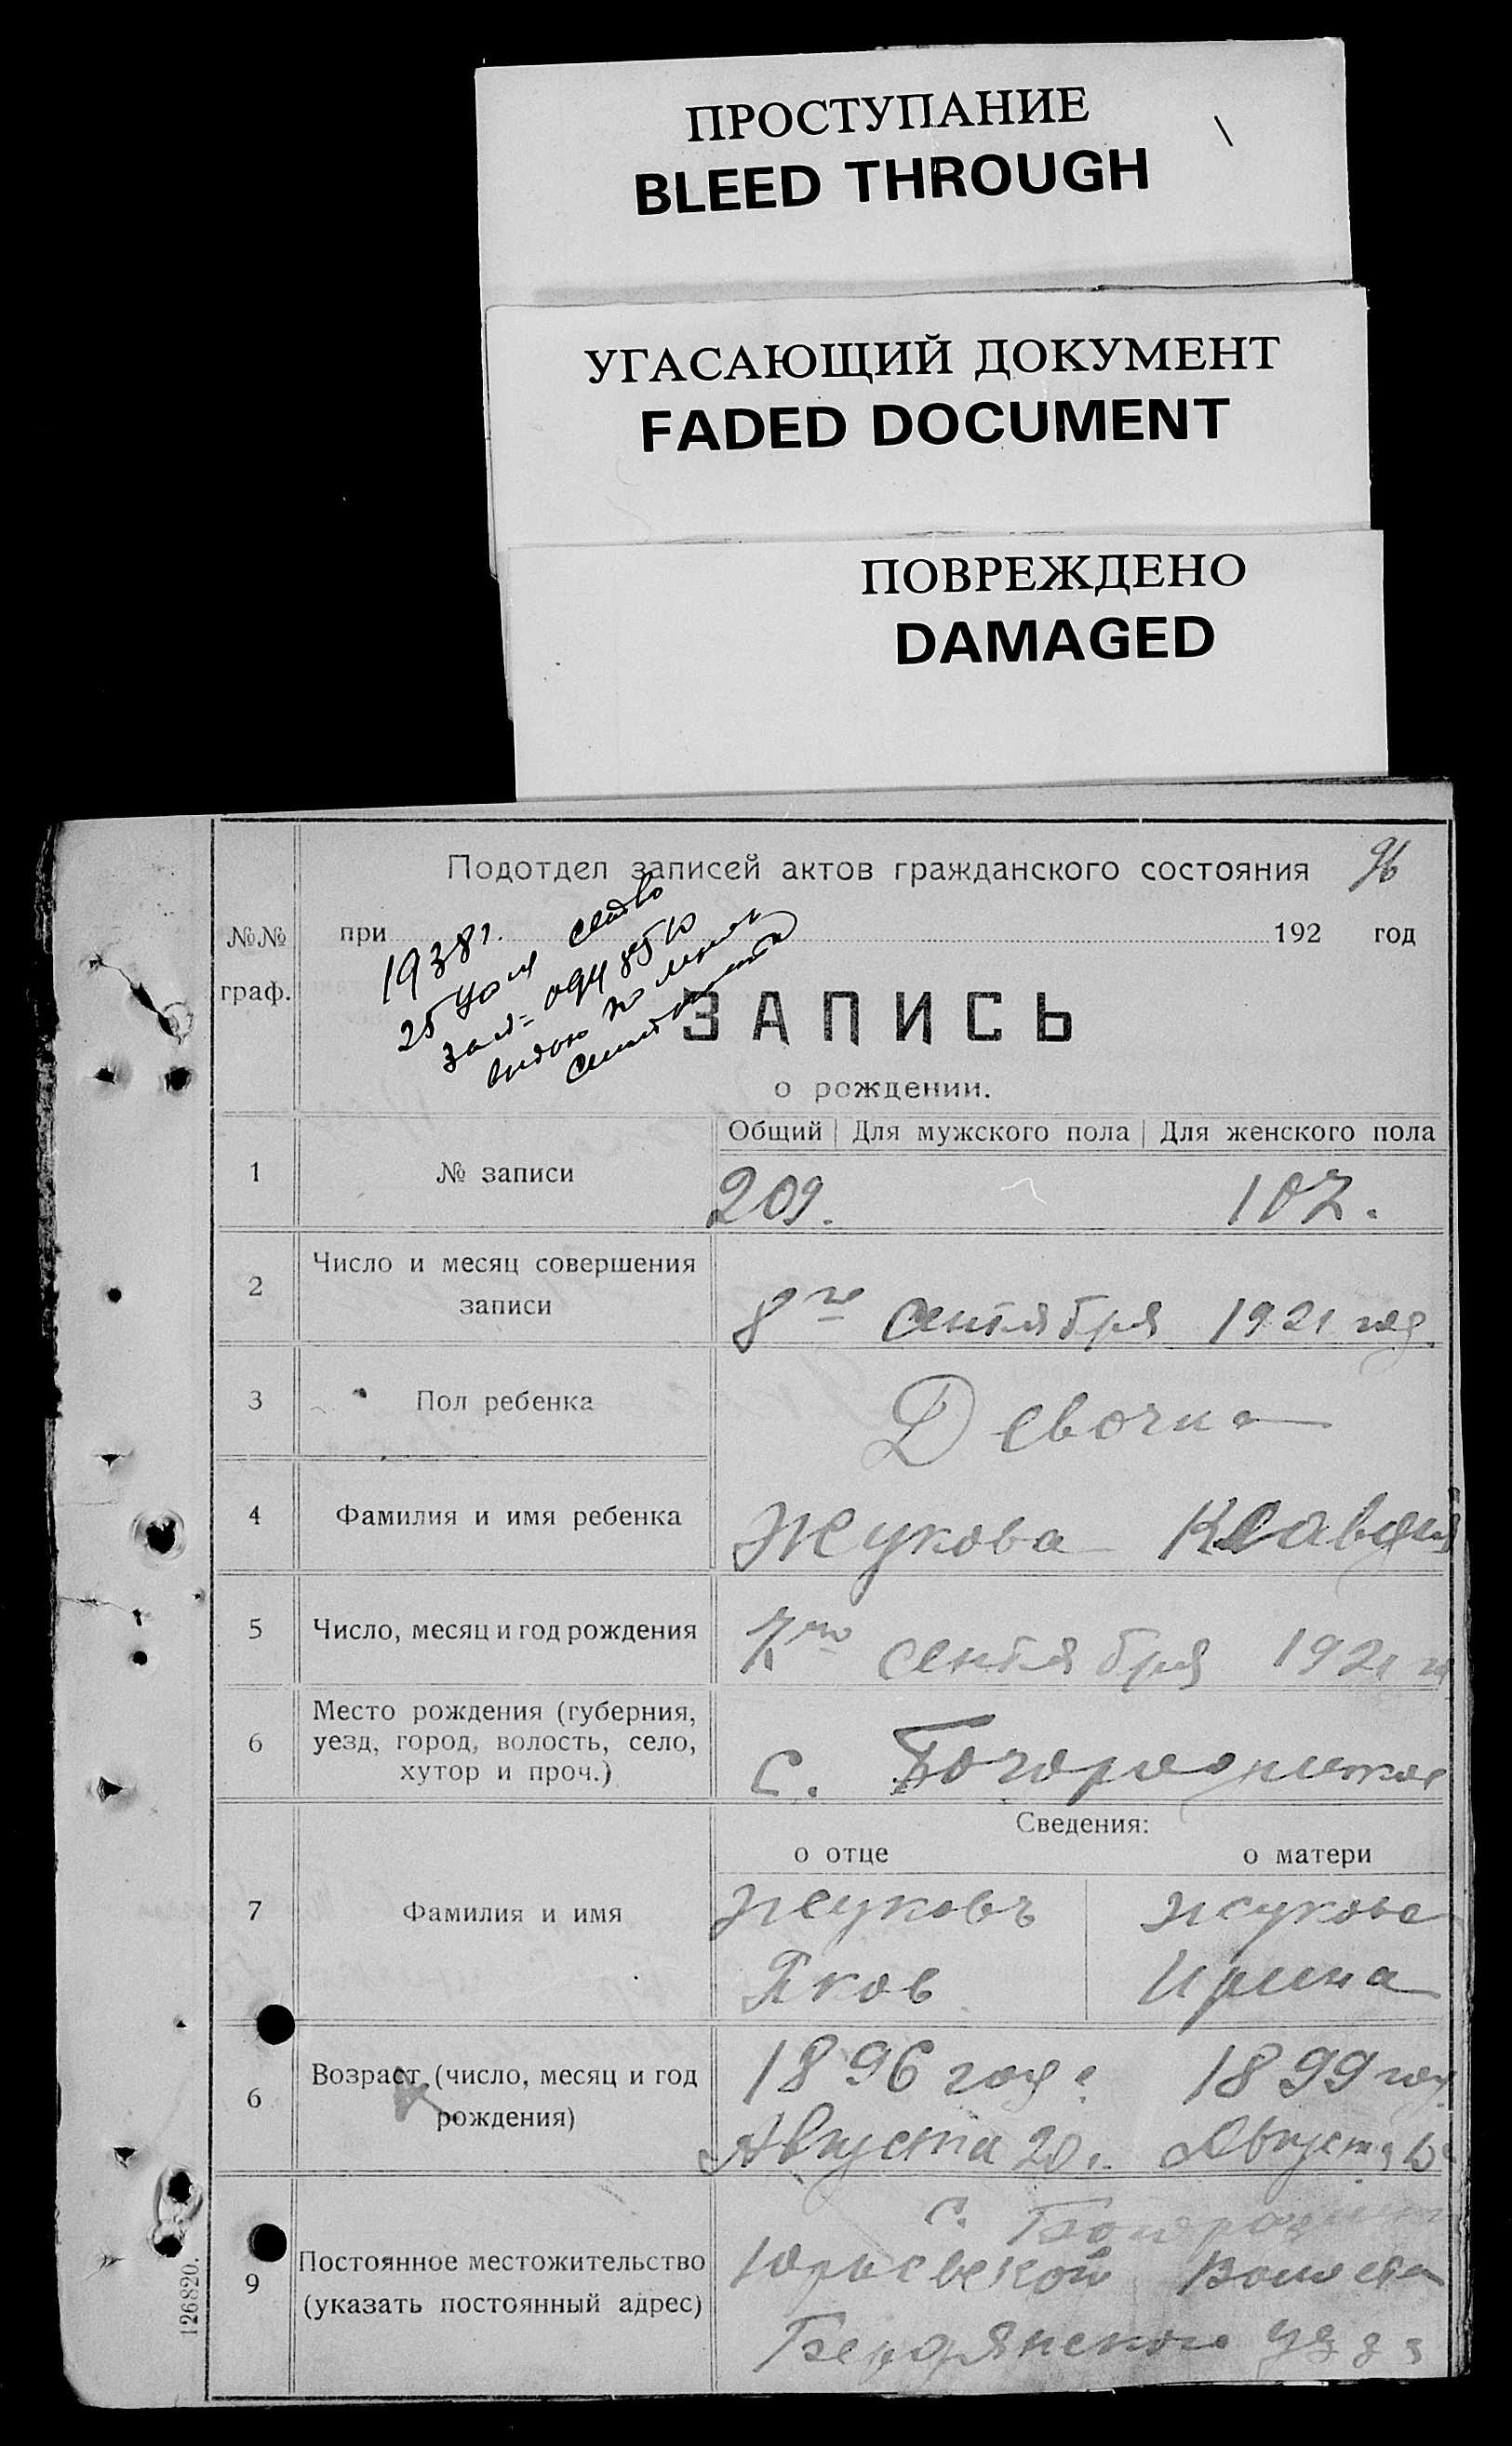 ПРОСТУПАНИЕ
BLEED THROUGH
УГАСАЮЩИЙ ДОКУМЕНТ
FADED DOCUMENT
ПОВРЕЖДЕНО
DAMAGED
Подотдел записей актов гражданского состояния 96
№№ при 192 год
граф.
1938 г.
25
ЗАПИСЬ
о рождении.
Общий Для мужского пола Для женского пола
1 № записи 209. 107.
2 Число и месяц совершения
записи 8го сентября 1921 год
3 Пол ребенка Девочка
4 Фамилия и имя ребенка Жукова Клавдия
5 Число, месяц и год рождения 7го сентября 1921
6 Место рождения (губерния,
уезд, город, волость, село,
хутор и проч.) с.
Сведения:
о отце о матери
7 Фамилия и имя Жуковъ Жукова
Яков Ирина
6 Возраст (число, месяц и год
рождения) 1896 года 1899 год
Августа 20 Августа
с.
9 Постоянное местожительство
(указать постоянный адрес) Юрьевской
Бердянского
126820.